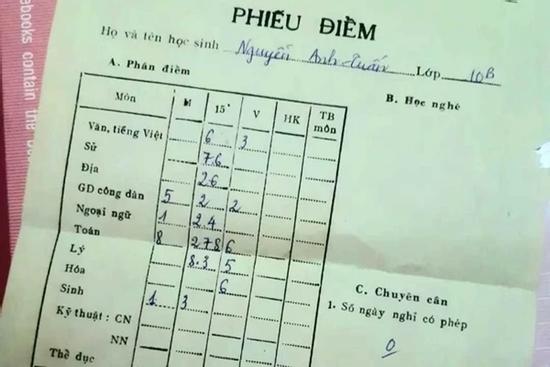 abooks contain the
PHIẾU ĐIỂM
Họ và tên học sinh Nguyễn Anh Tuấn Lớp 10B
A. Phần điểm
B. Học nghề
Môn M 15' V HK TB môn
Văn, tiếng Việt 6 3
Sử 7 6
Địa 2 6
GD công dân 5 2 2
Ngoại ngữ 1 2 4
Toán 8 2 7 8 6
Lý 8.3 5
Hóa 6
Sinh 1 3
Kỹ thuật : CN
NN
Thể dục
C. Chuyên cần
1. Số ngày nghỉ có phép
0